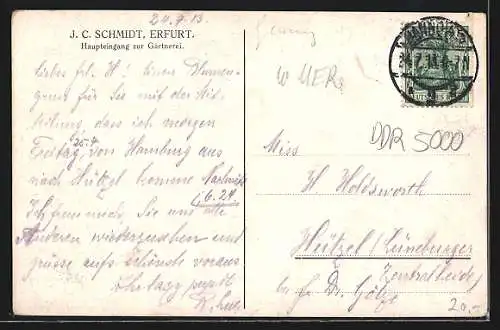 24.7.13.
J. C. SCHMIDT, ERFURT.
Haupteingang zur Gärtnerei.
Liebes Frl. H! Einen Blumen-
gruss für Sie mit der Mit-
teilung, dass ich morgen
Freitag, von Hamburg aus
25.7
nach Hützel komme
6.24.
Ich freue mich, Sie und alle
Anderen wiederzusehen und
grüsse aufs schönste voraus
DDR 5000
Miss
H Holdsworth
Hützel (Lüneburger
Zentralheide)
Dr. Götze
20,-